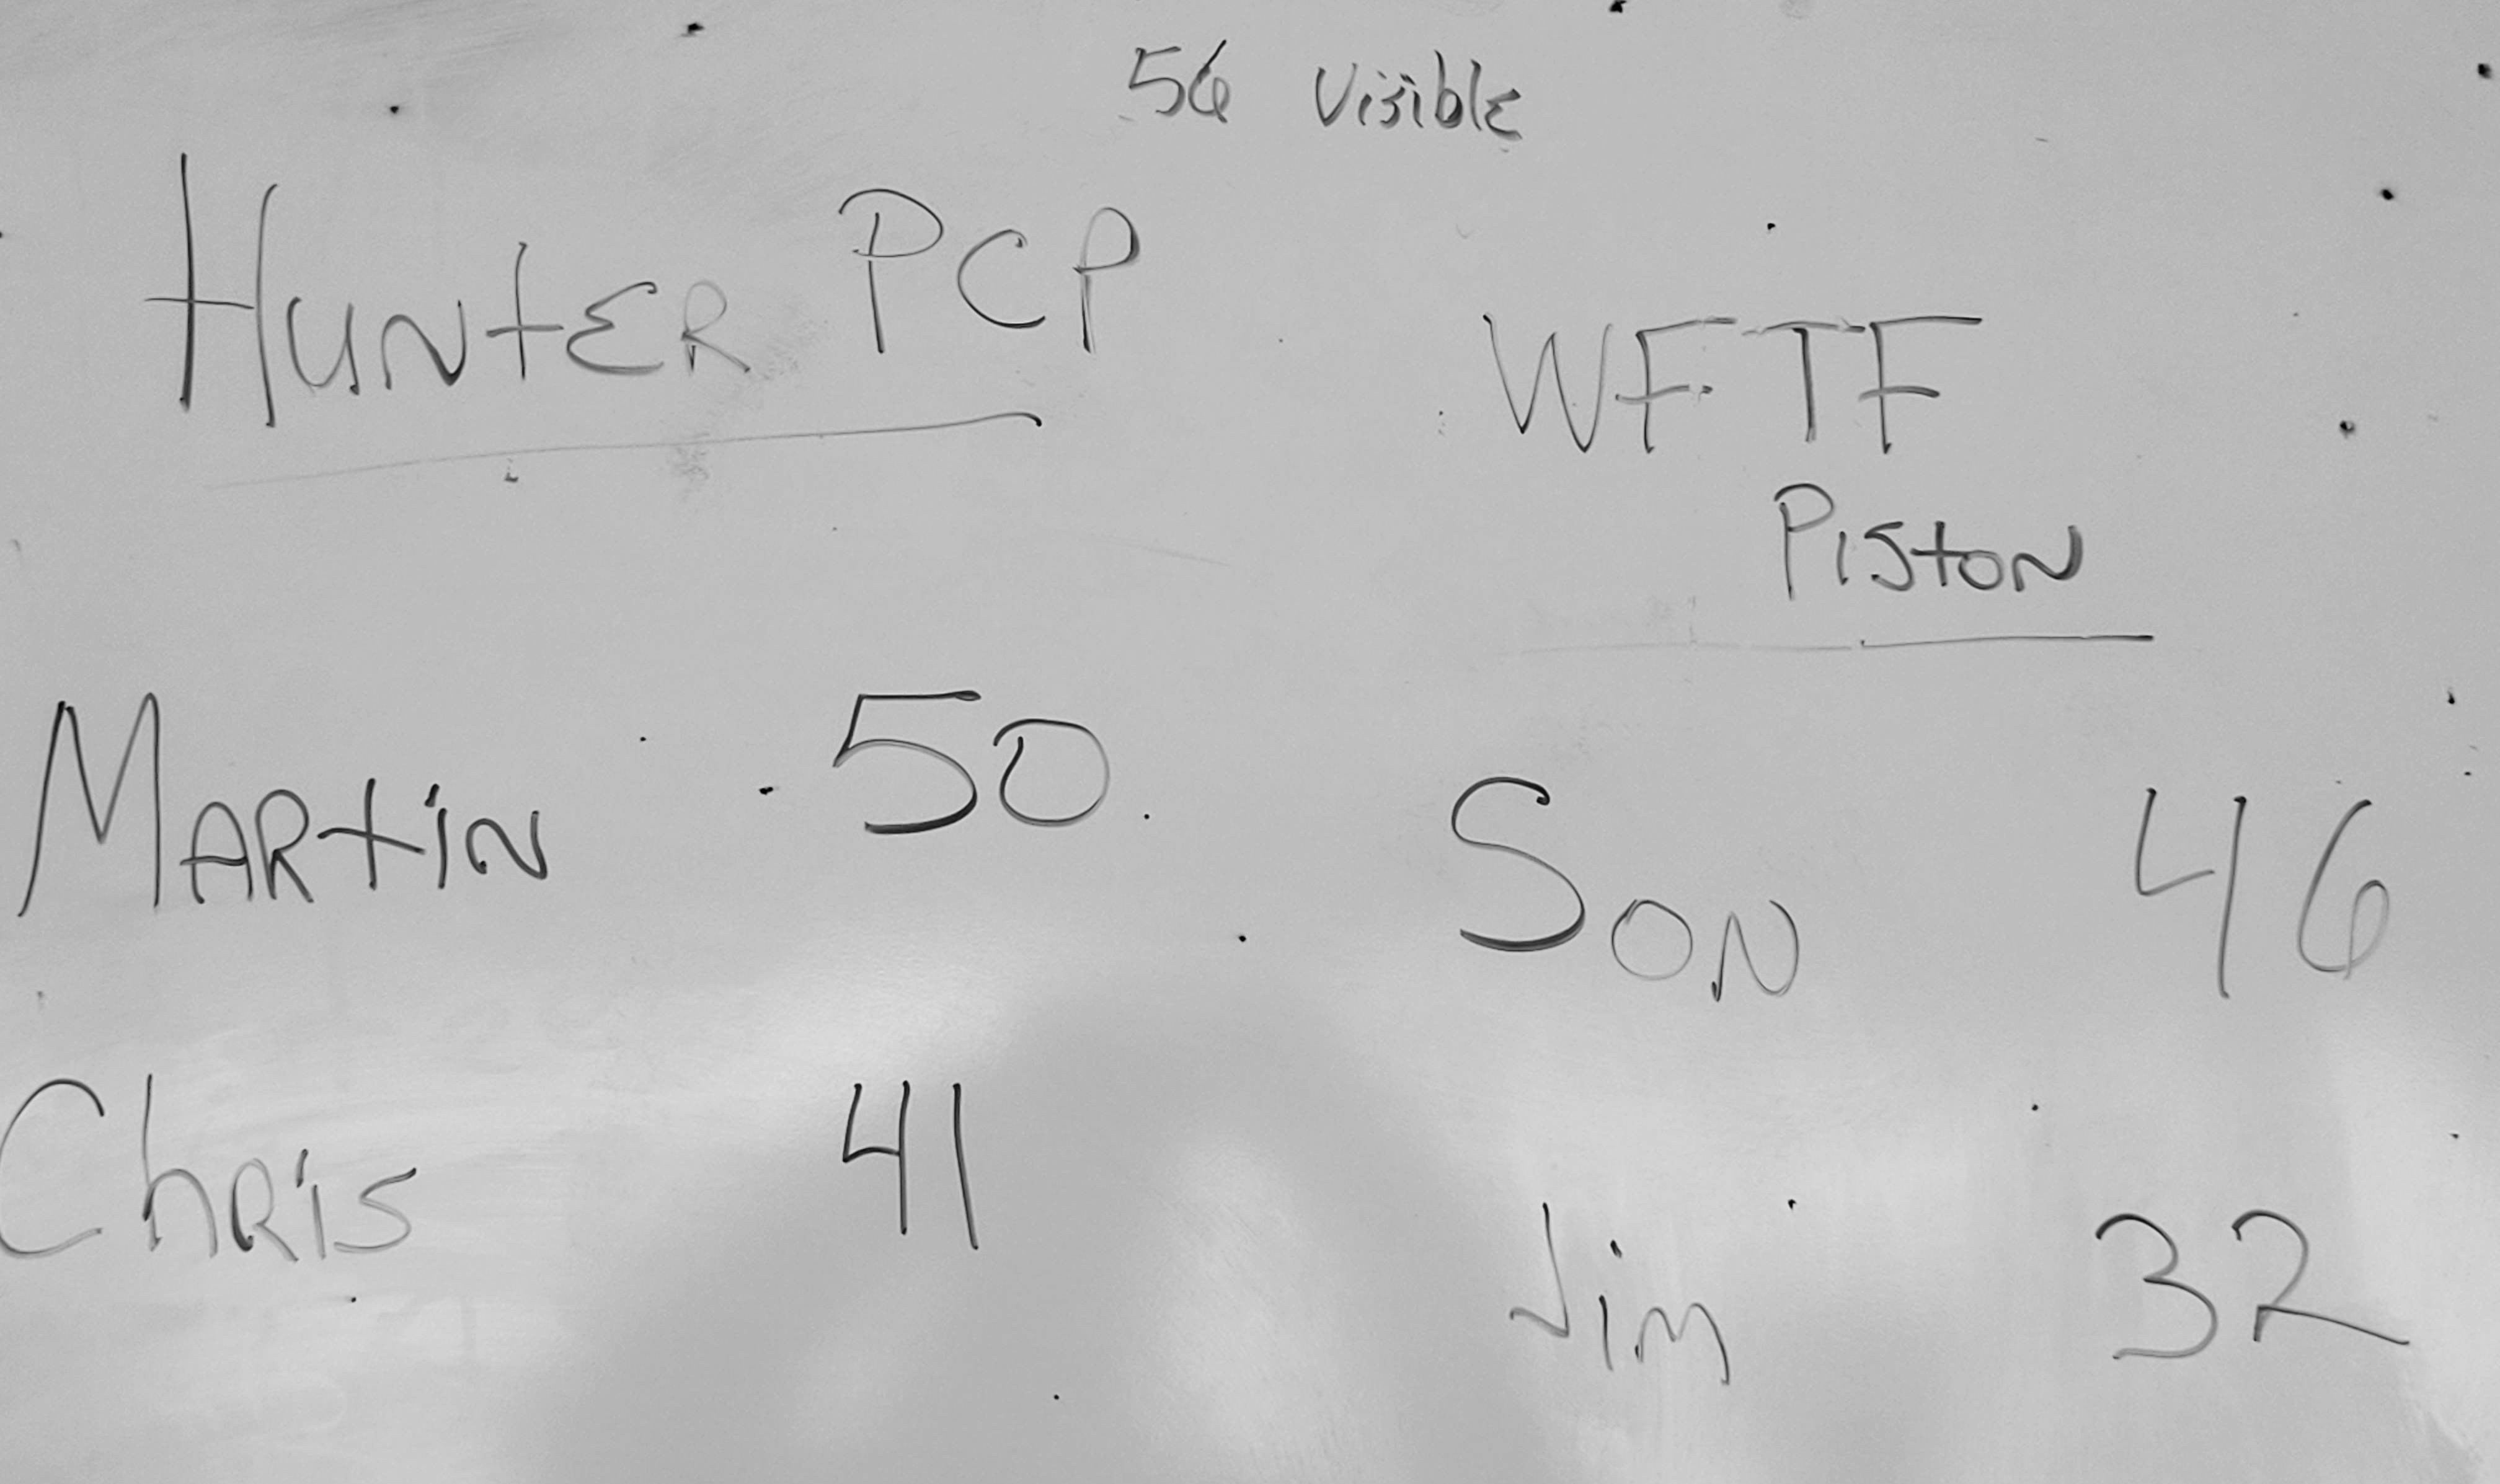 56 Visible
Hunter PCP
WFTF
Piston
Martin 50
Chris 41
Son 46
Jim 32